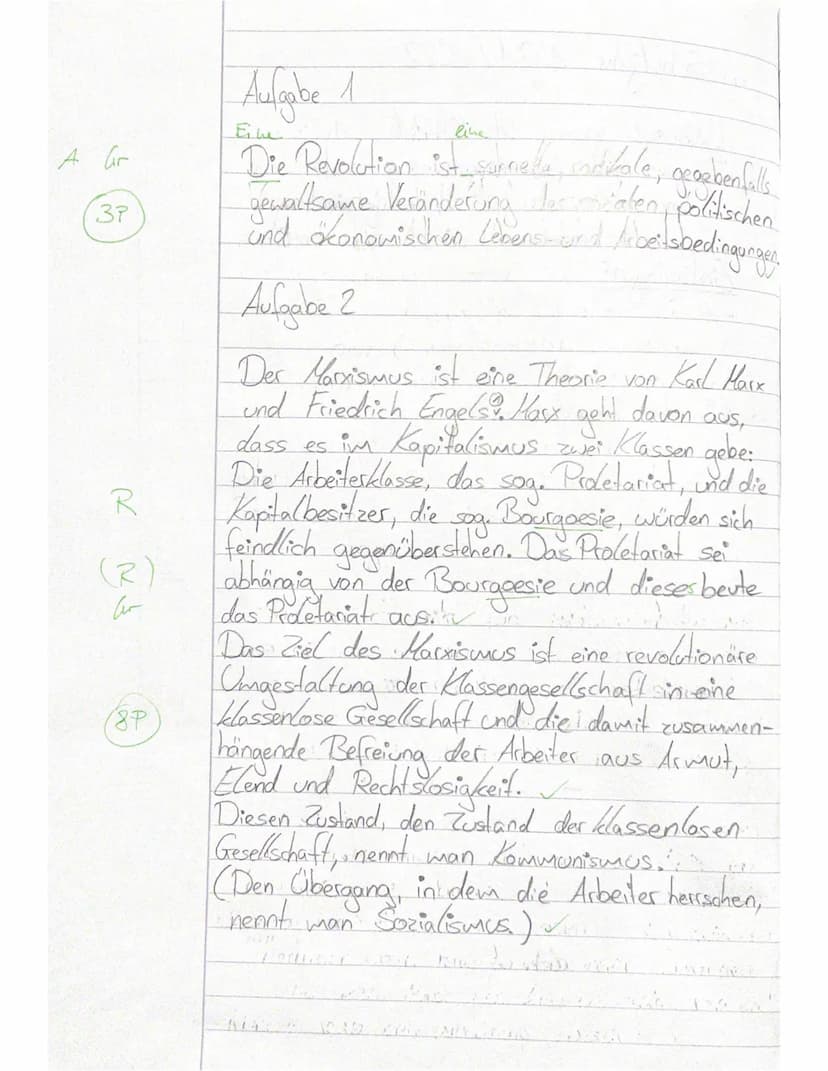 Aufgabe 1
Eine eine
A Gr Die Revolution ist schnelle, radikale, gegebenfalls
3P gewaltsame Veränderung der sozialen, politischen
und ökonomischen Lebens- und Arbeitsbedingungen.
Aufgabe 2
Der Marxismus ist eine Theorie von Karl Marx
und Friedrich Engels. Marx geht davon aus,
dass es im Kapitalismus zwei Klassen gebe:
Die Arbeiterklasse, das sog. Proletariat, und die
R Kapitalbesitzer, die sog. Bourgoesie, würden sich
feindlich gegenüberstehen. Das Proletariat sei
(R) abhängig von der Bourgoesie und dieses beute
Gr das Proletariat aus. ✓
Das Ziel des Marxismus ist eine revolutionäre
Umgestaltung der Klassengesellschaft in eine
8P klassenlose Gesellschaft und die damit zusammen-
hängende Befreiung der Arbeiter aus Armut,
Elend und Rechtslosigkeit. ✓
Diesen Zustand, den Zustand der klassenlosen
Gesellschaft, nennt man Kommunismus.
(Den Übergang, in dem die Arbeiter herrschen,
nennt man Sozialismus.) ✓